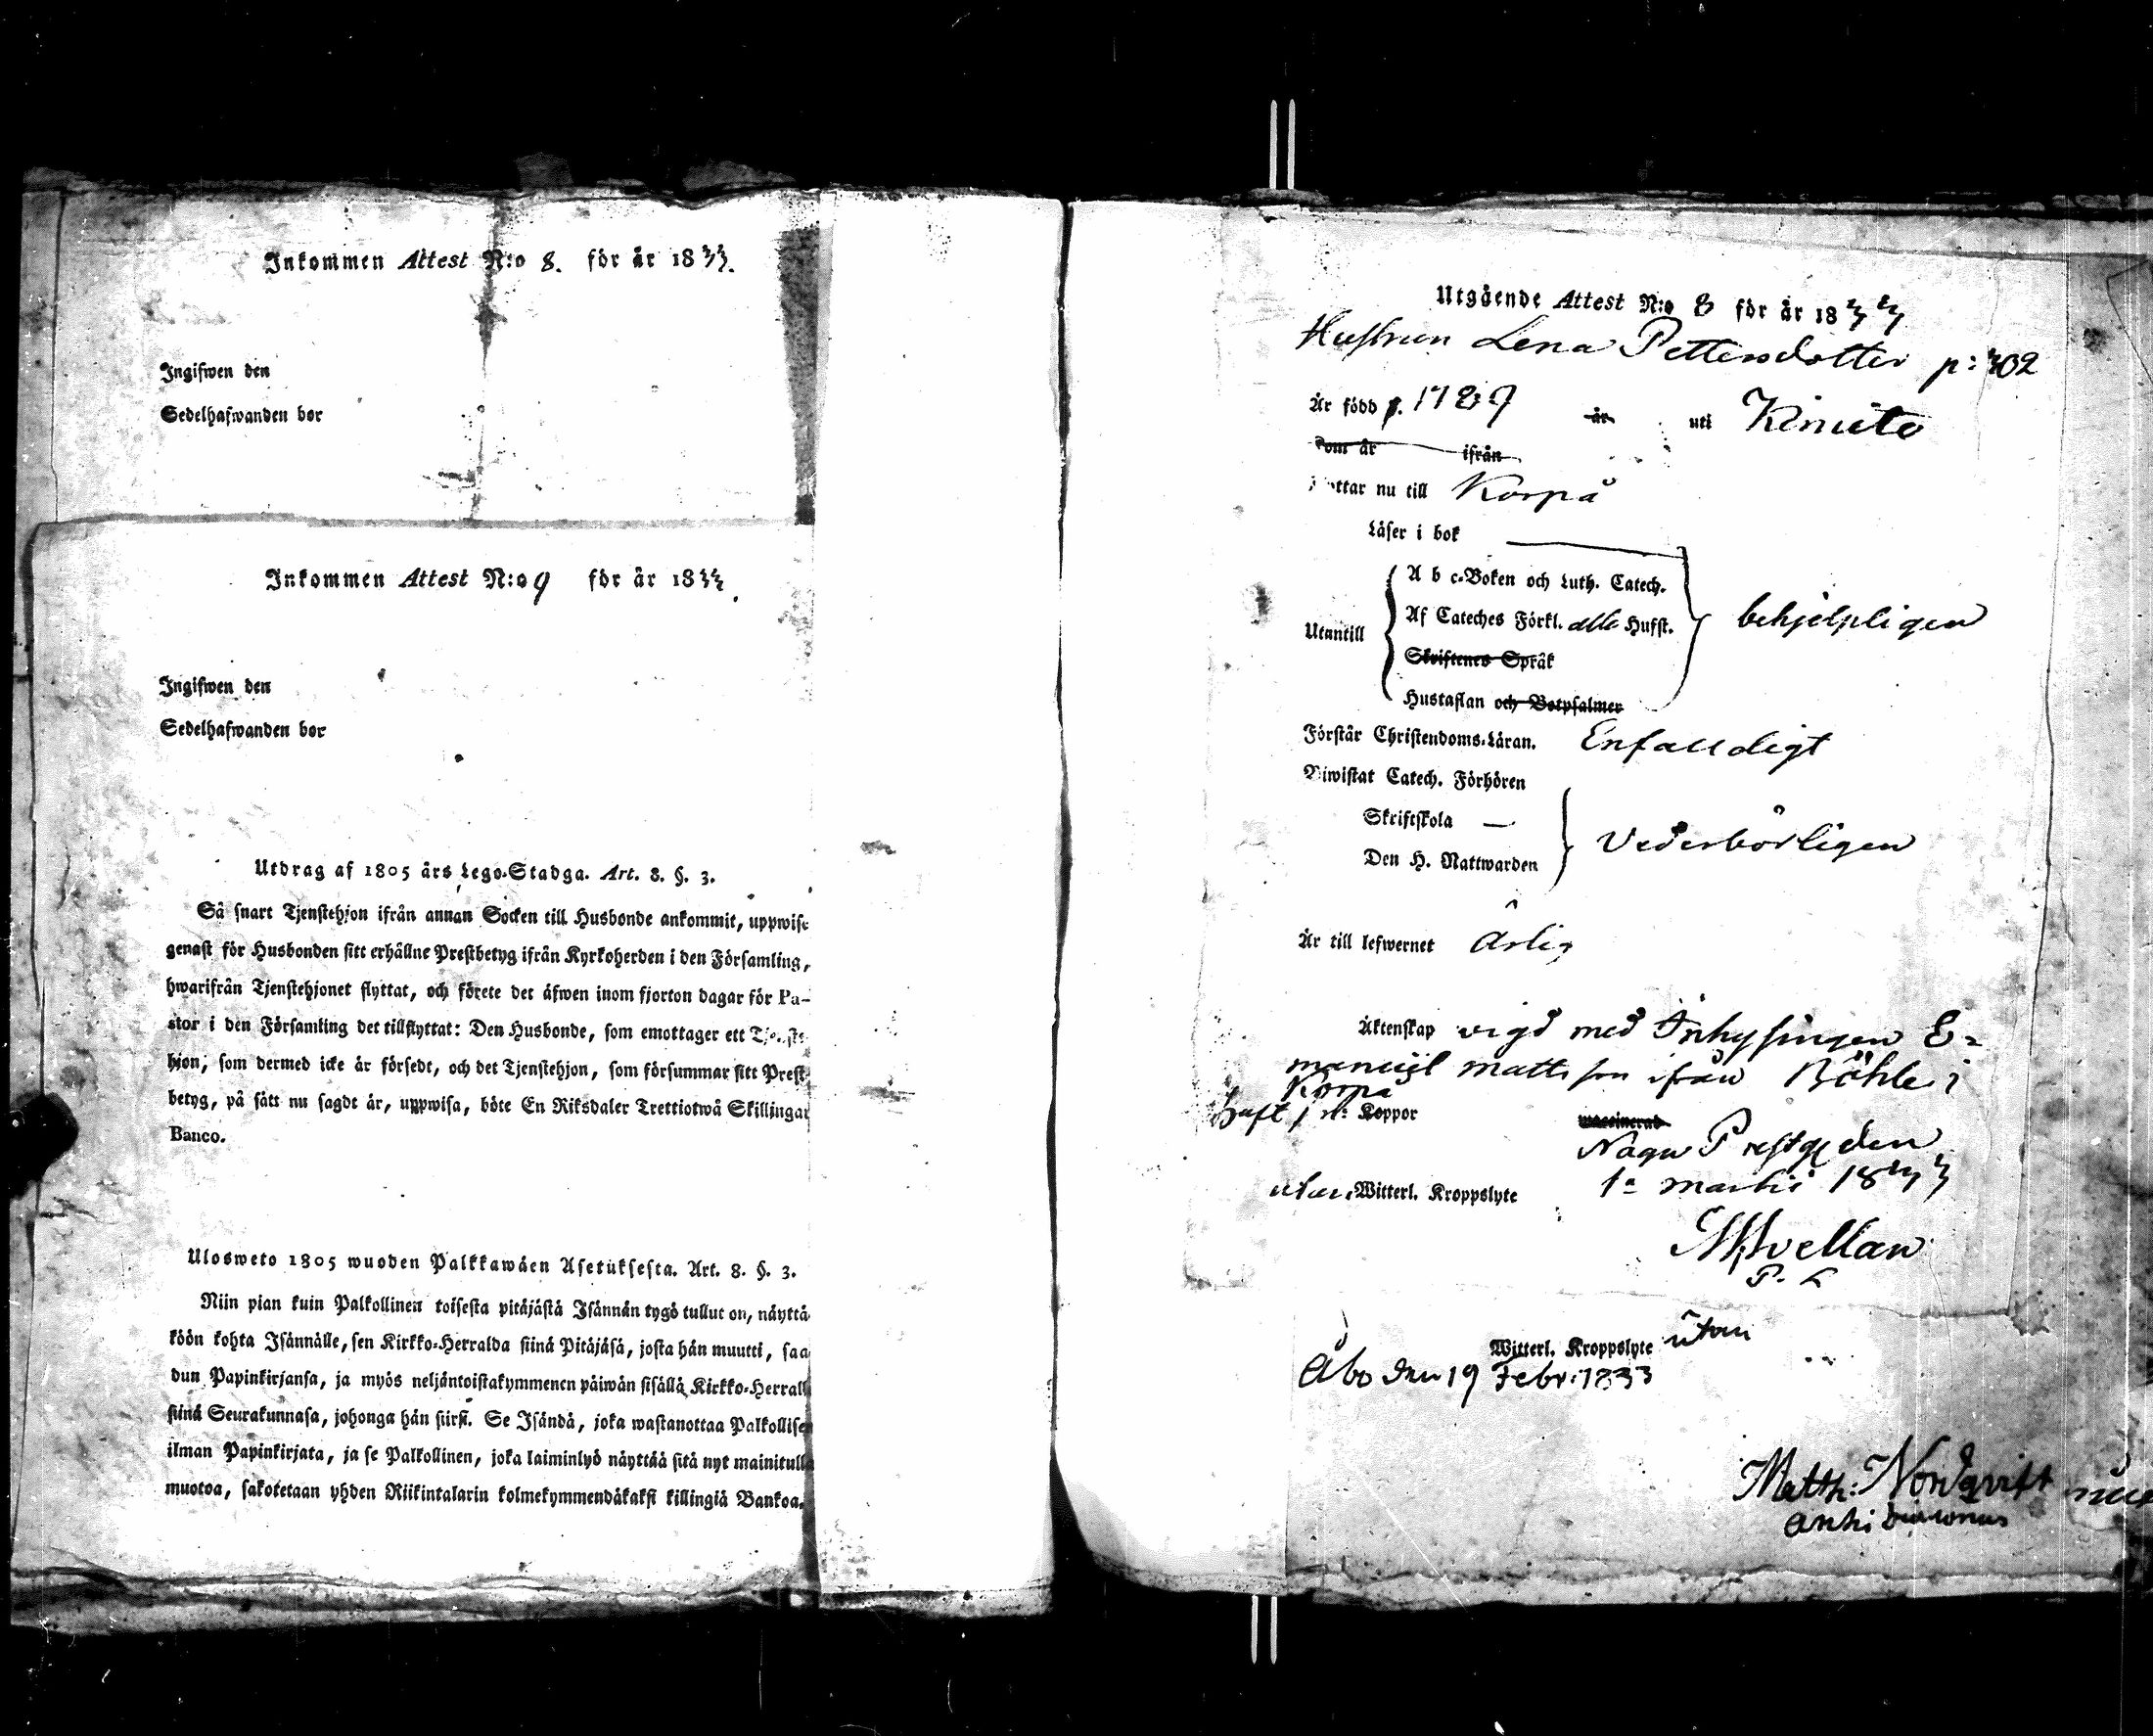 Inkommen Attest N:o 8. för år 1833.
Ingifwen den
Sedelhafwanden bor
Inkommen Attest N:o 9 för år 1833.
Ingifwen den
Sedelhafwanden bor
Utdrag af 1805 års Lego-Stadga. Art. 8. §. 3.
Så snart Tjenstehjon ifrån annan Socken till Husbonde ankommit, uppwise
genast för Husbonden sitt erhållne Prestbetyg ifrån Kyrkoherden i den Församling,
hwarifrån Tjenstehjonet flyttat, och förete det äfwen inom fjorton dagar för Pa-
stor i den Församling det tillflyttat: Den Husbonde, som emottager ett Tjenste-
hjon, som dermed icke är försedt, och det Tjenstehjon, som försummar sitt Prest-
betyg, på sätt nu sagdt är, uppwisa, böte En Riksdaler Trettiotwå Skillingar
Banco.
Ulosweto 1805 wuoden Palkkawäen Asetuksesta. Art. 8. §. 3.
Niin pian kuin Palkollinen toisesta pitäjästä Isännän tygö tullut on, näyttä-
köön kohta Isännälle, sen Kirkko-Herralda siinä Pitäjäsä, josta hän muutti, saa
dun Papinkirjansa, ja myös neljäntoistakymmenen päiwän sisällä Kirkko-Herrall
siinä Seurakunnasa, johonga hän siirsi. Se Isändä, joka wastanottaa Palkollisen
ilman Papinkirjata, ja se Palkollinen, joka laiminlyö näyttää sitä nyt mainitulla
muotoa, sakotetaan yhden Riikintalarin kolmekymmendäkaksi killingiä Bankoa.
Utgående Attest N:o 8 för år 1833
Hustrun Lena Pettersdotter p: 302
Är född 1789 år uti Kimito
Kom år ifrån
Flyttar nu till Korpå
Läser i bok
A b c-Boken och Luth. Catech.
Utantill Af Cateches Förkl. alla Hufst. behjelpligen
Skriftenes Språk
Hustaflan och Botpsalmer
Förstår Christendoms-Läran. Enfalldigt
Biwistat Catech. Förhören
Skriftskola —
Den H. Nattwarden Vederbörligen
Är till lefwernet ärlig
Äktenskap vigd med Inhysingen E-
manuel Mattsson ifrån Böhle i
Korpå
haft Koppor waccinerad
Nagu Prestgd den
utan Witterl. Kroppslyte 1a Martii 1833
Avellan
P. L
Witterl. Kroppslyte utan
Åbo den 19 Febr: 1833
Matth: Nordqvist
Archi Diaconus